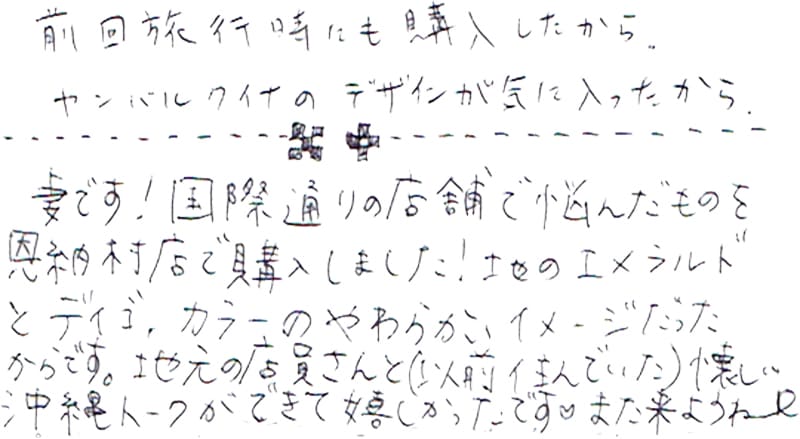 前回旅行時にも購入したから。
ヤンバルクイナのデザインが気に入ったから。
妻です！国際通りの店舗で悩んだものを
恩納村店で購入しました！地のエメラルド
とデイゴ、カラーのやわらかいイメージだった
からです。地元の店員さんと(以前住んでいた)懐しい
沖縄トークができて嬉しかったです♡また来ようね